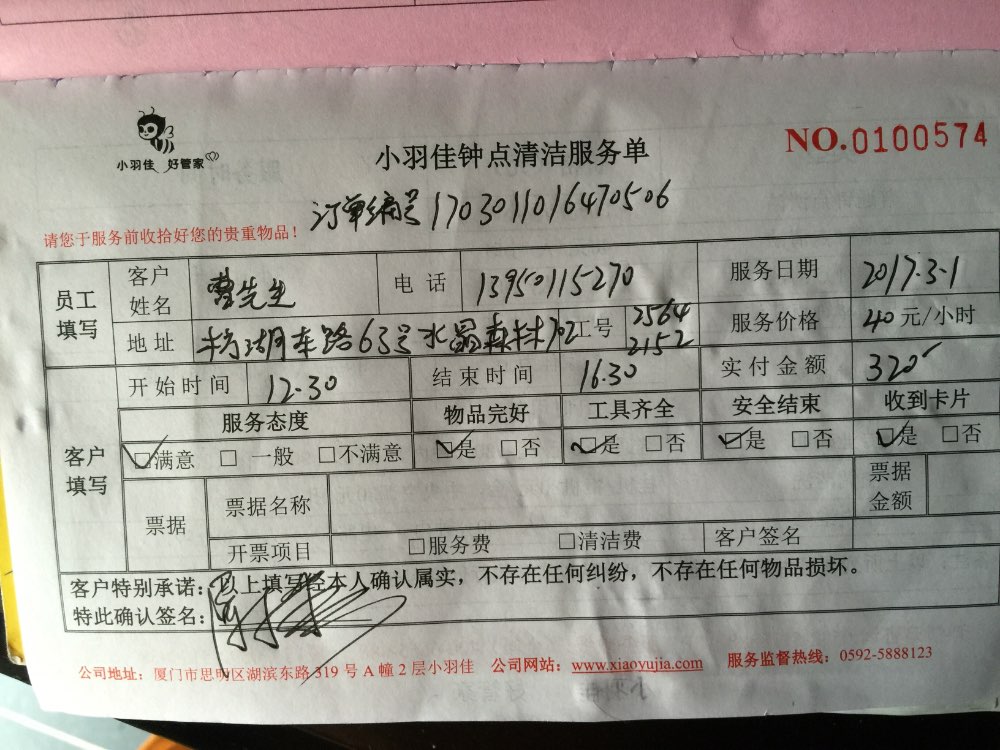 小羽佳 好管家
小羽佳钟点清洁服务单
NO.0100574
订单编号 1703011016470506
请您于服务前收拾好您的贵重物品！
员工填写 客户姓名 曹先生 电话 13950115270 服务日期 2017.3.1
地址 湖东路63号水晶森林702 工号 2564 2152 服务价格 40 元/小时
客户填写 开始时间 12.30 结束时间 16.30 实付金额 320
服务态度 物品完好 工具齐全 安全结束 收到卡片
☑满意 □ 一般 □不满意 ☑是 □否 ☑是 □否 ☑是 □否 ☑是 □否
票据 票据名称 票据金额
开票项目 □服务费 □清洁费 客户签名
客户特别承诺：以上填写经本人确认属实，不存在任何纠纷，不存在任何物品损坏。
特此确认签名：
公司地址：厦门市思明区湖滨东路 319 号 A 幢 2 层小羽佳 公司网站：www.xiaoyujia.com 服务监督热线：0592-5888123